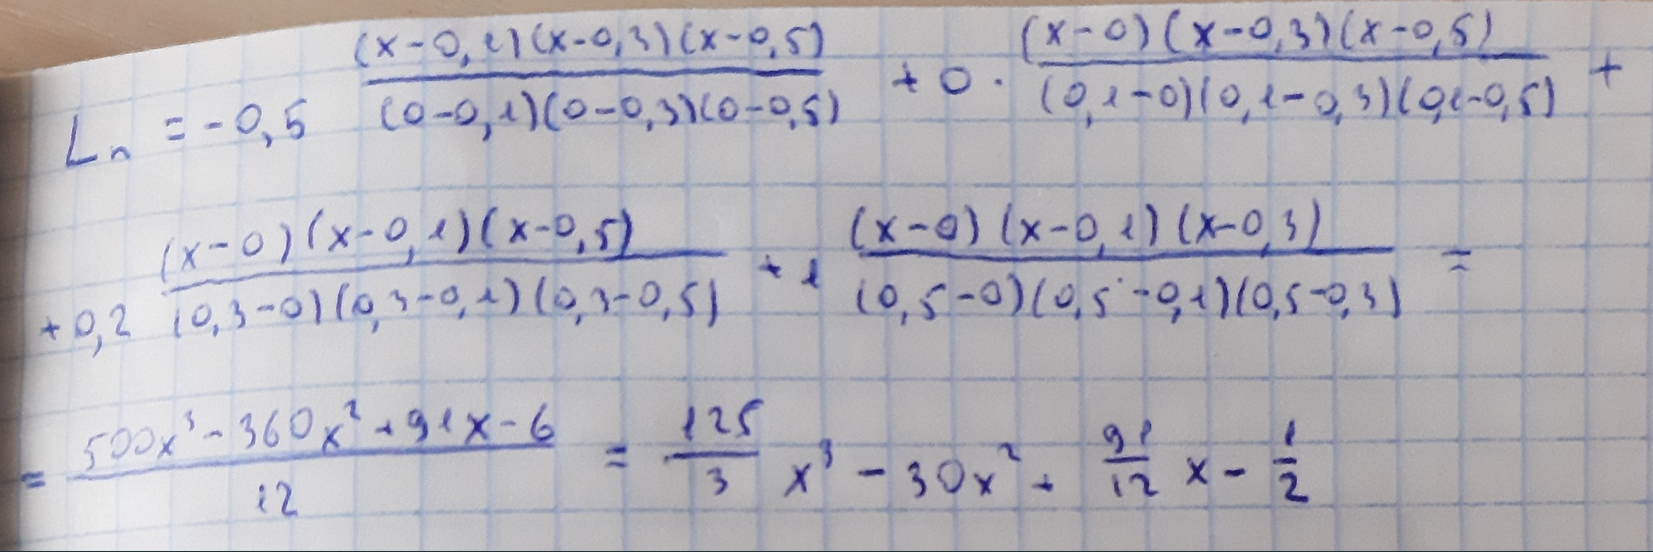 Lₙ = -0,5 \frac{(x-0,1)(x-0,3)(x-0,5)}{(0-0,1)(0-0,3)(0-0,5)} + 0 · \frac{(x-0)(x-0,3)(x-0,5)}{(0,1-0)(0,1-0,3)(0,1-0,5)} +
+0,2 \frac{(x-0)(x-0,1)(x-0,5)}{(0,3-0)(0,3-0,1)(0,3-0,5)} + 1 \frac{(x-0)(x-0,1)(x-0,3)}{(0,5-0)(0,5-0,1)(0,5-0,3)} =
= \frac{500x³ - 360x² + 91x - 6}{12} = \frac{125}{3} x³ - 30x² + \frac{91}{12} x - \frac{1}{2}